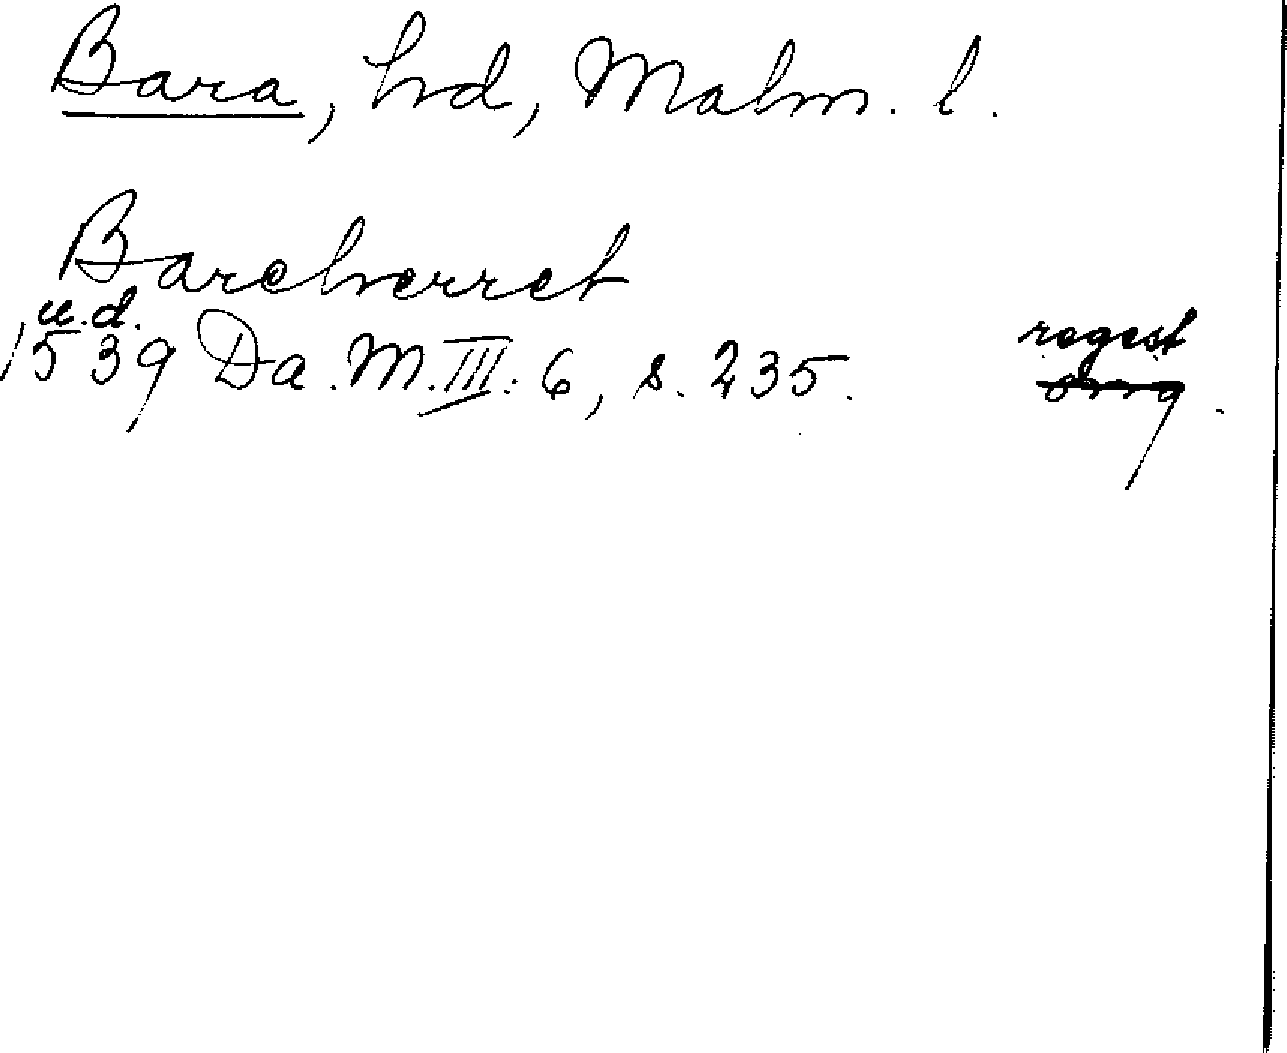 Bara, hd, Malm. l.
Bareherret
u.d.
1539 Da. M. III: 6, s. 235. regest